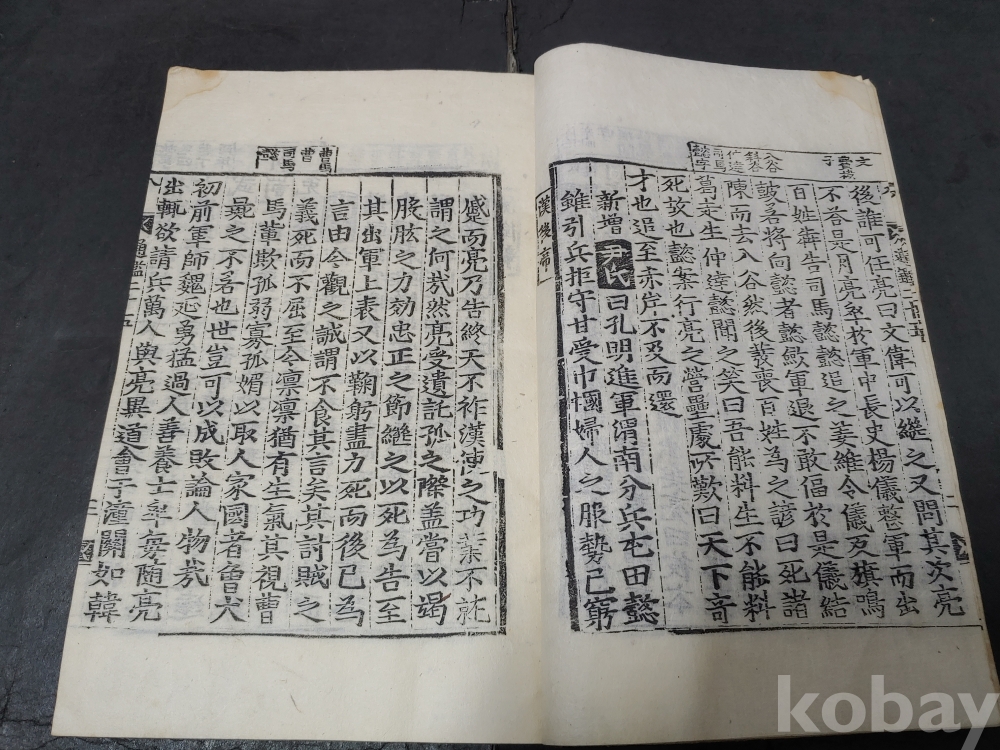 後誰可任亮曰文偉可以繼之又問其次亮
不荅是月亮卒於軍中長史楊儀整軍而出
百姓犇告司馬懿懿追之姜維令儀反旗鳴
皷若將向懿者懿歛軍退不敢偪於是儀結
陳而去入谷然後發喪百姓為之諺曰死諸
葛走生仲達懿聞之笑曰吾能料生不能料
死故也懿案行亮之營壘處所歎曰天下奇
才也追至赤岸不及而還
新增尹氏曰孔明進軍渭南分兵屯田懿
雖引兵拒守甘受巾幗婦人之服勢已窮
漢後帝
蹙而亮乃告終天不祚漢使之功業不就
謂之何㦲然亮受遺託孤之際盖嘗以竭
股肱之力効忠正之節繼之以死為告至
其出軍上表又以鞠躬盡力死而後已為
言由今觀之誠謂不食其言矣其討賊之
義死而不屈至今凛凛猶有生氣其視曹
馬輩欺孤弱寡狐媚以取人家國者曾犬
彘之不若也世豈可以成敗論人物㦲
初前軍師魏延勇猛過人善養士卒每隨亮
出輒欲請兵萬人與亮異道會于潼關如韓
通鑑二十五
曹馬
曹
司馬
懿
kobay